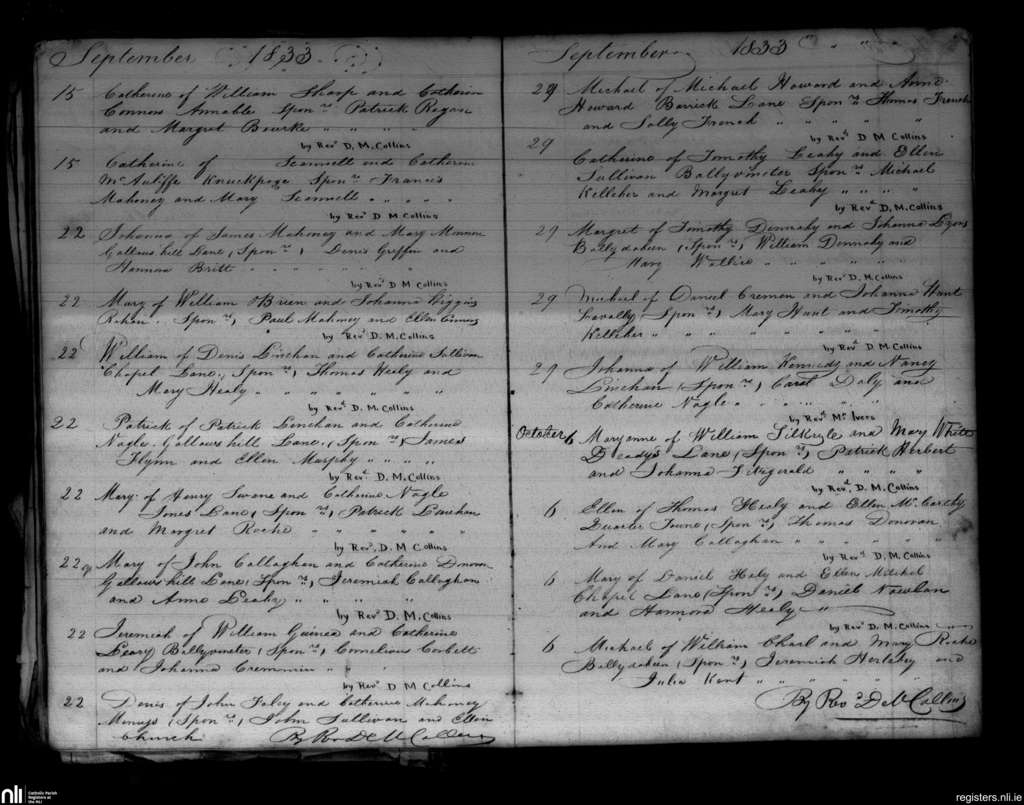 September 1833
15 Catherine of William Sharp and Catherin
Connors Annable Spon rs Patrick Regan
and Margret Bourke " " " "
by Revd D. M. Collins
15 Catherine of Scannell and Catherin
McAuliffe Knuckpoge Spon rs Francis
Mahoney and Mary Scannell " " " "
by Revd D M Collins
22 Johanna of James Mahoney and Mary
Gallows hill Lane, Spon rs, Denis Griffin and
Hannora Britt " " " " "
by Revd D M Collins
22 Mary of William OBrien and Johanna Higgins
Spon rs, Paul Mahoney and Ellen Connors
by Revd D. M. Collins
22 William of Denis Linehan and Catherine Sullivan
Chapel Lane, Spon rs, Thomas Healy and
Mary Healy " " " " " "
by Revd D. M. Collins
22 Patrick of Patrick Linehan and Catherine
Nagle. Gallows hill Lane, (Spon rs, James
Flynn and Ellen Murphy " " " "
by Revd D. M. Collins
22 Mary of Henry Swane and Catherine Nagle
Jones Lane, Spon rs, Patrick Linehan
and Margret Roche " " " " "
by Revd. D. M Collins
22 Mary of John Callaghan and Catherine Donovan
Gallows hill Lane, Spon rs, Jeremiah Callaghan
and Anne Leahy " " "
by Revd D. M. Collins
22 Jeremiah of William Guinea and Catherine
Leary Ballyvineter (Spon rs, Cornelious Corbett
and Johanna Cremmin " "
by Revd D M Collins
22 Denis of John Foley and Catherine Mahoney
(Spon rs, John Sullivan and Ellen
Church By Rev D McCollins
September 1833 " " "
29 Michael of Michael Howard and Anne
Howard Barrick Lane Spon rs Thomas French
and Sally French " " " " "
by Revd D M Collins
29 Catherine of Timothy Leahy and Ellen
Sullivan Ballyvineter Spon rs Michael
Kelleher and Margret Leahy " " " "
by Revd D, M, Collins
29 Margret of Timothy Dennahy and Johanna Lyons
Ballydaheen (Spon rs, William Dennahy and
Mary " " " " "
by Revd D. M. Collins
29 Micheal of Daniel Cremen and Johanna Hunt
Spon rs, Mary Hunt and Timothy
Kelleher " " " " " "
by Revd D. M Collins
29 Johanna of William Kennedy and Nancy
Linehan (Spon rs, Carol Daly and
Catherine Nagle " " " " "
by Revd Mr Ivers
October 6 Maryanne of William Silkryle and Mary White
Deadys Lane, (Spon rs, Patrick Herbert
and Johanna Fitzgerald " " " "
by Revd. D, M, Collins
6 Ellen of Thomas Healy and Ellen McCarthy
Quarter Town, (Spon rs, Thomas Donovan
And Mary Callaghan " " " " "
by Revd D, M, Collins
6 Mary of Daniel Haly and Ellen Mitchel
Chapel Lane (Spon rs, Daniel Nowlan
and Hannora Healy "
by Revd D. M. Collins
6 Michael of William Charl and Mary Roche
Ballydaheen (Spon rs, Jeremiah Herlehy and
Julia Kent " " " " "
By Revd D McCollins
nli Catholic Parish
Registers at
the NLI
registers.nli.ie